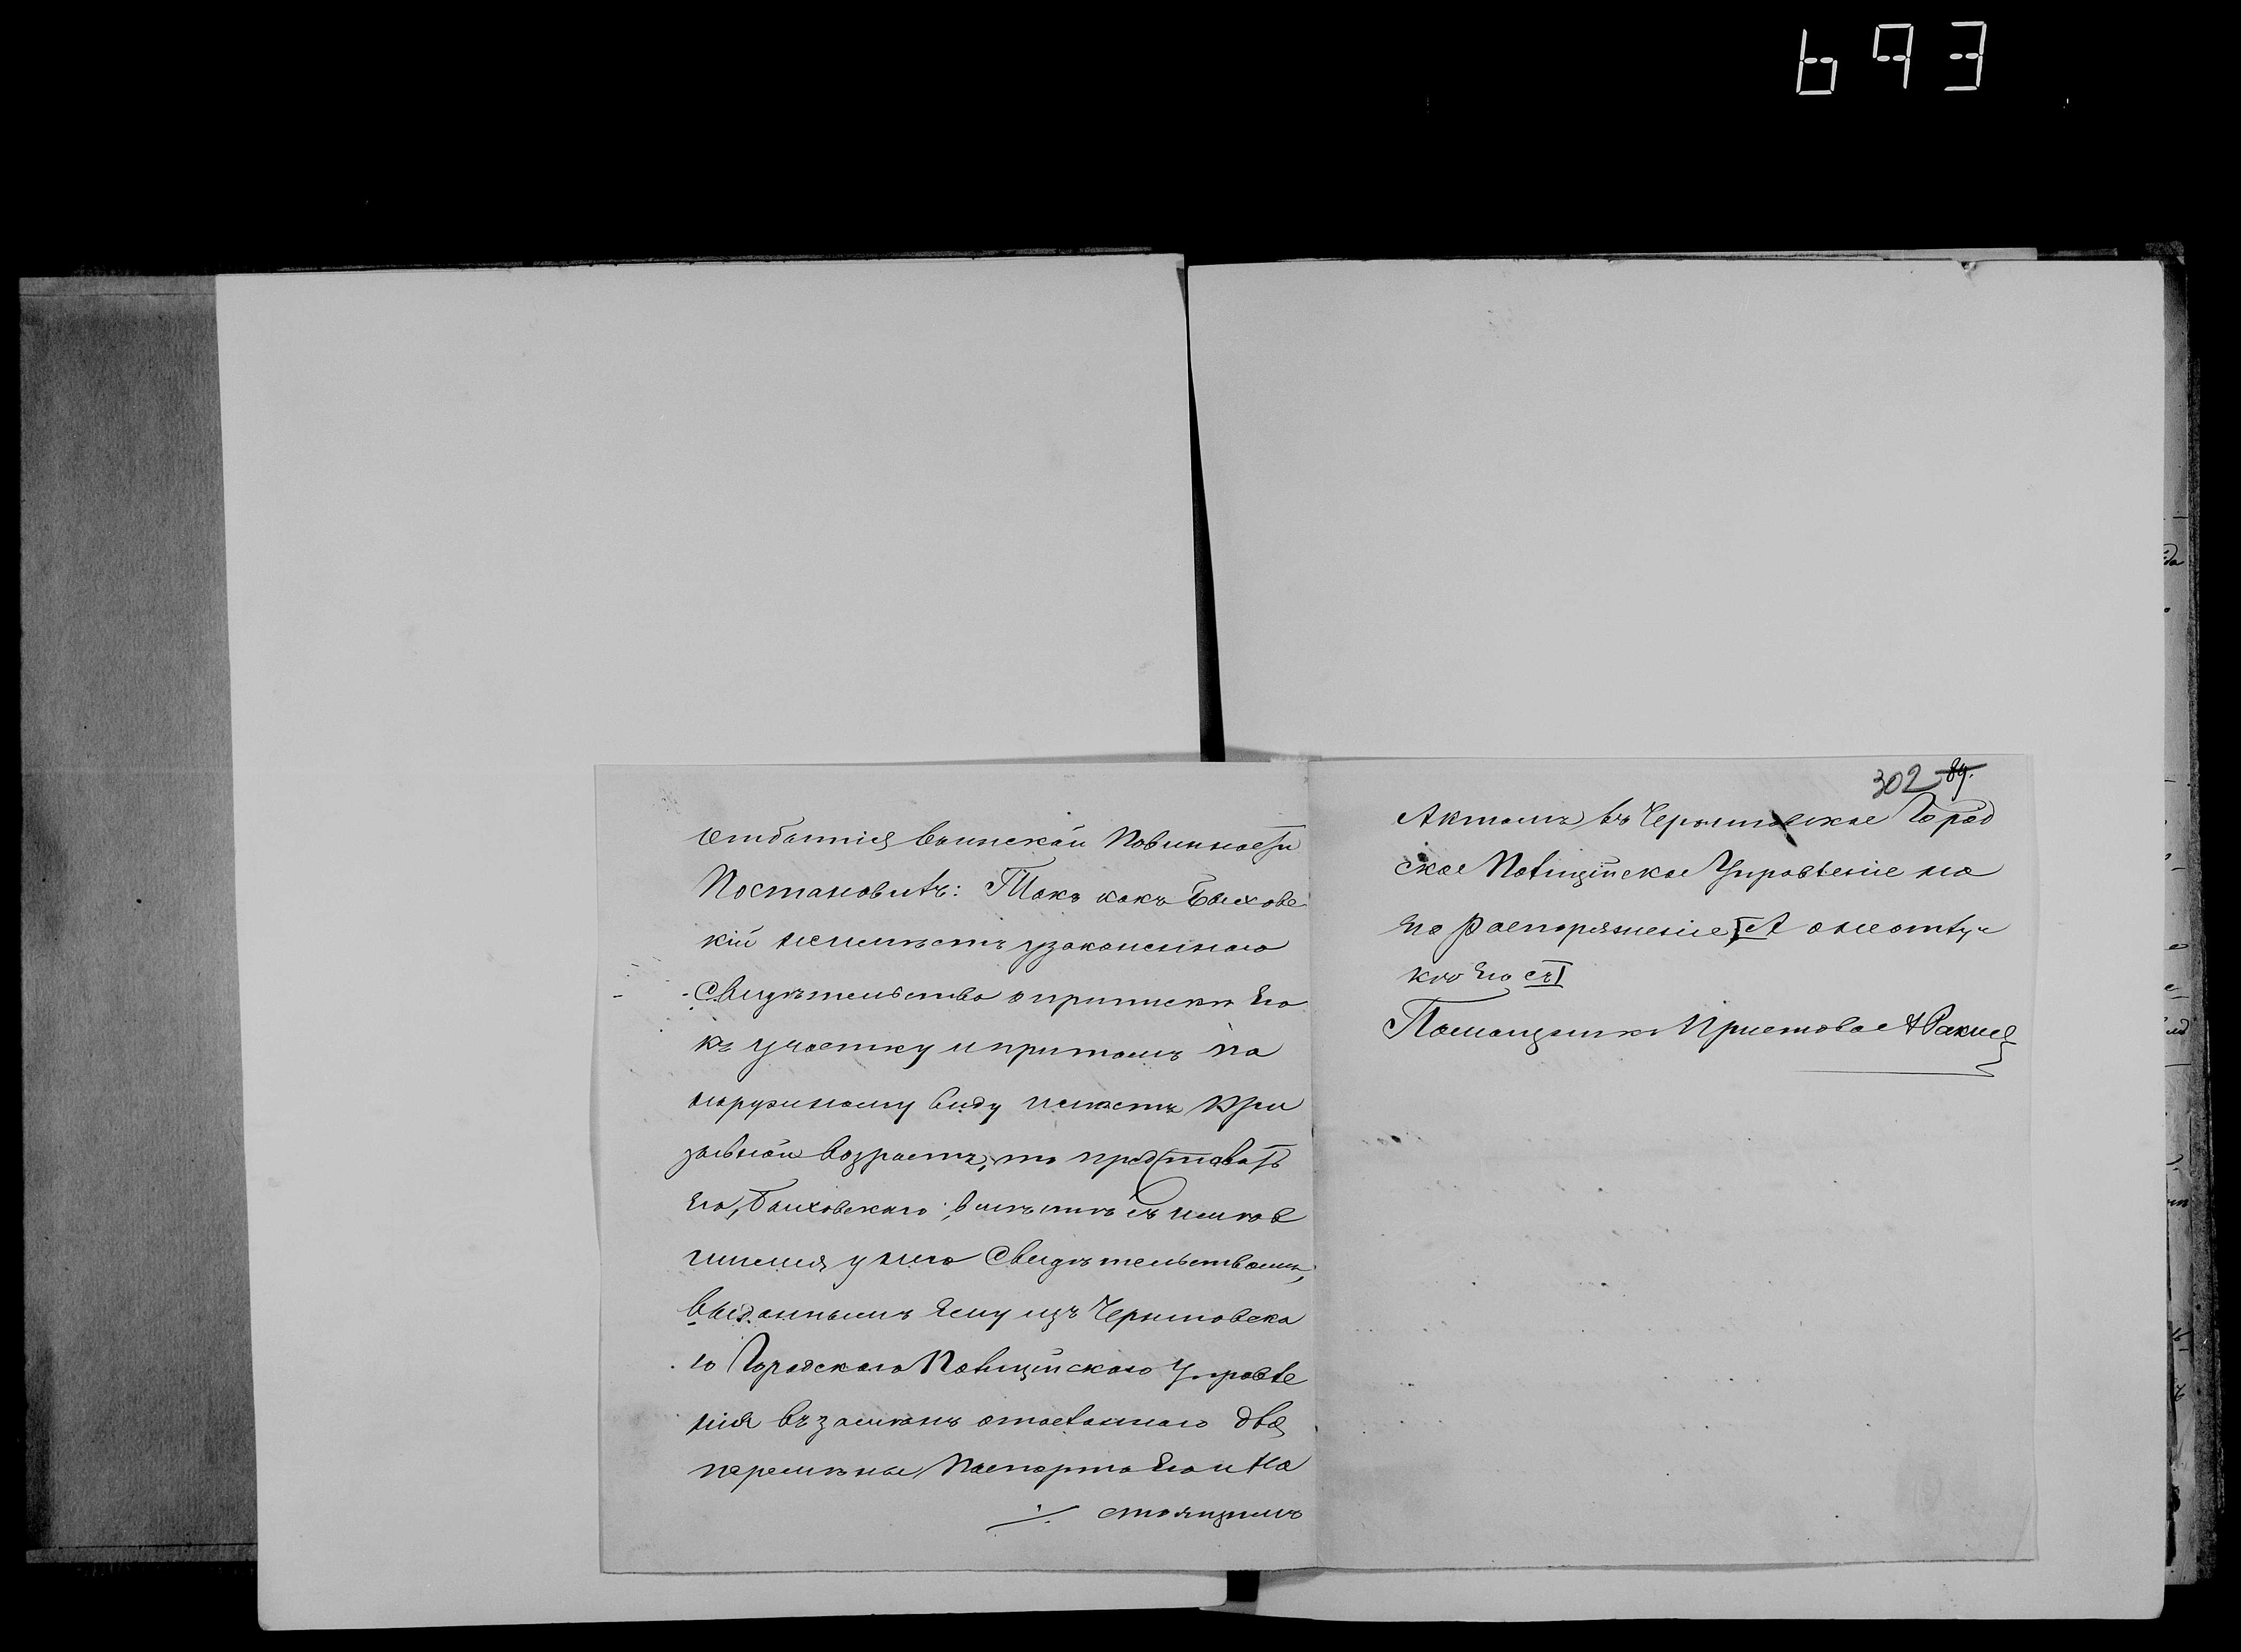 693
отбытія воинской повинности
Постановилъ: Такъ какъ Быховс
кій не имѣетъ узаконеннаго
Свидѣтельства о припискѣ Его
къ участку и притомъ по
наружному виду имѣетъ при
зывной возрастъ, то представить
Его, Быховскаго, вмѣстѣ съ имѣю
щимся у него Свидѣтельствомъ,
выданнымъ Ему изъ
го Городского Полицейского Управле
нія въ замѣнъ оставленнаго для
перемѣны паспорта Его и На
стоящимъ
302 84.
Актомъ въ Город
ское Полицейское Управленіе на
его распоряженіе, А
Его
Помощникъ Пристава